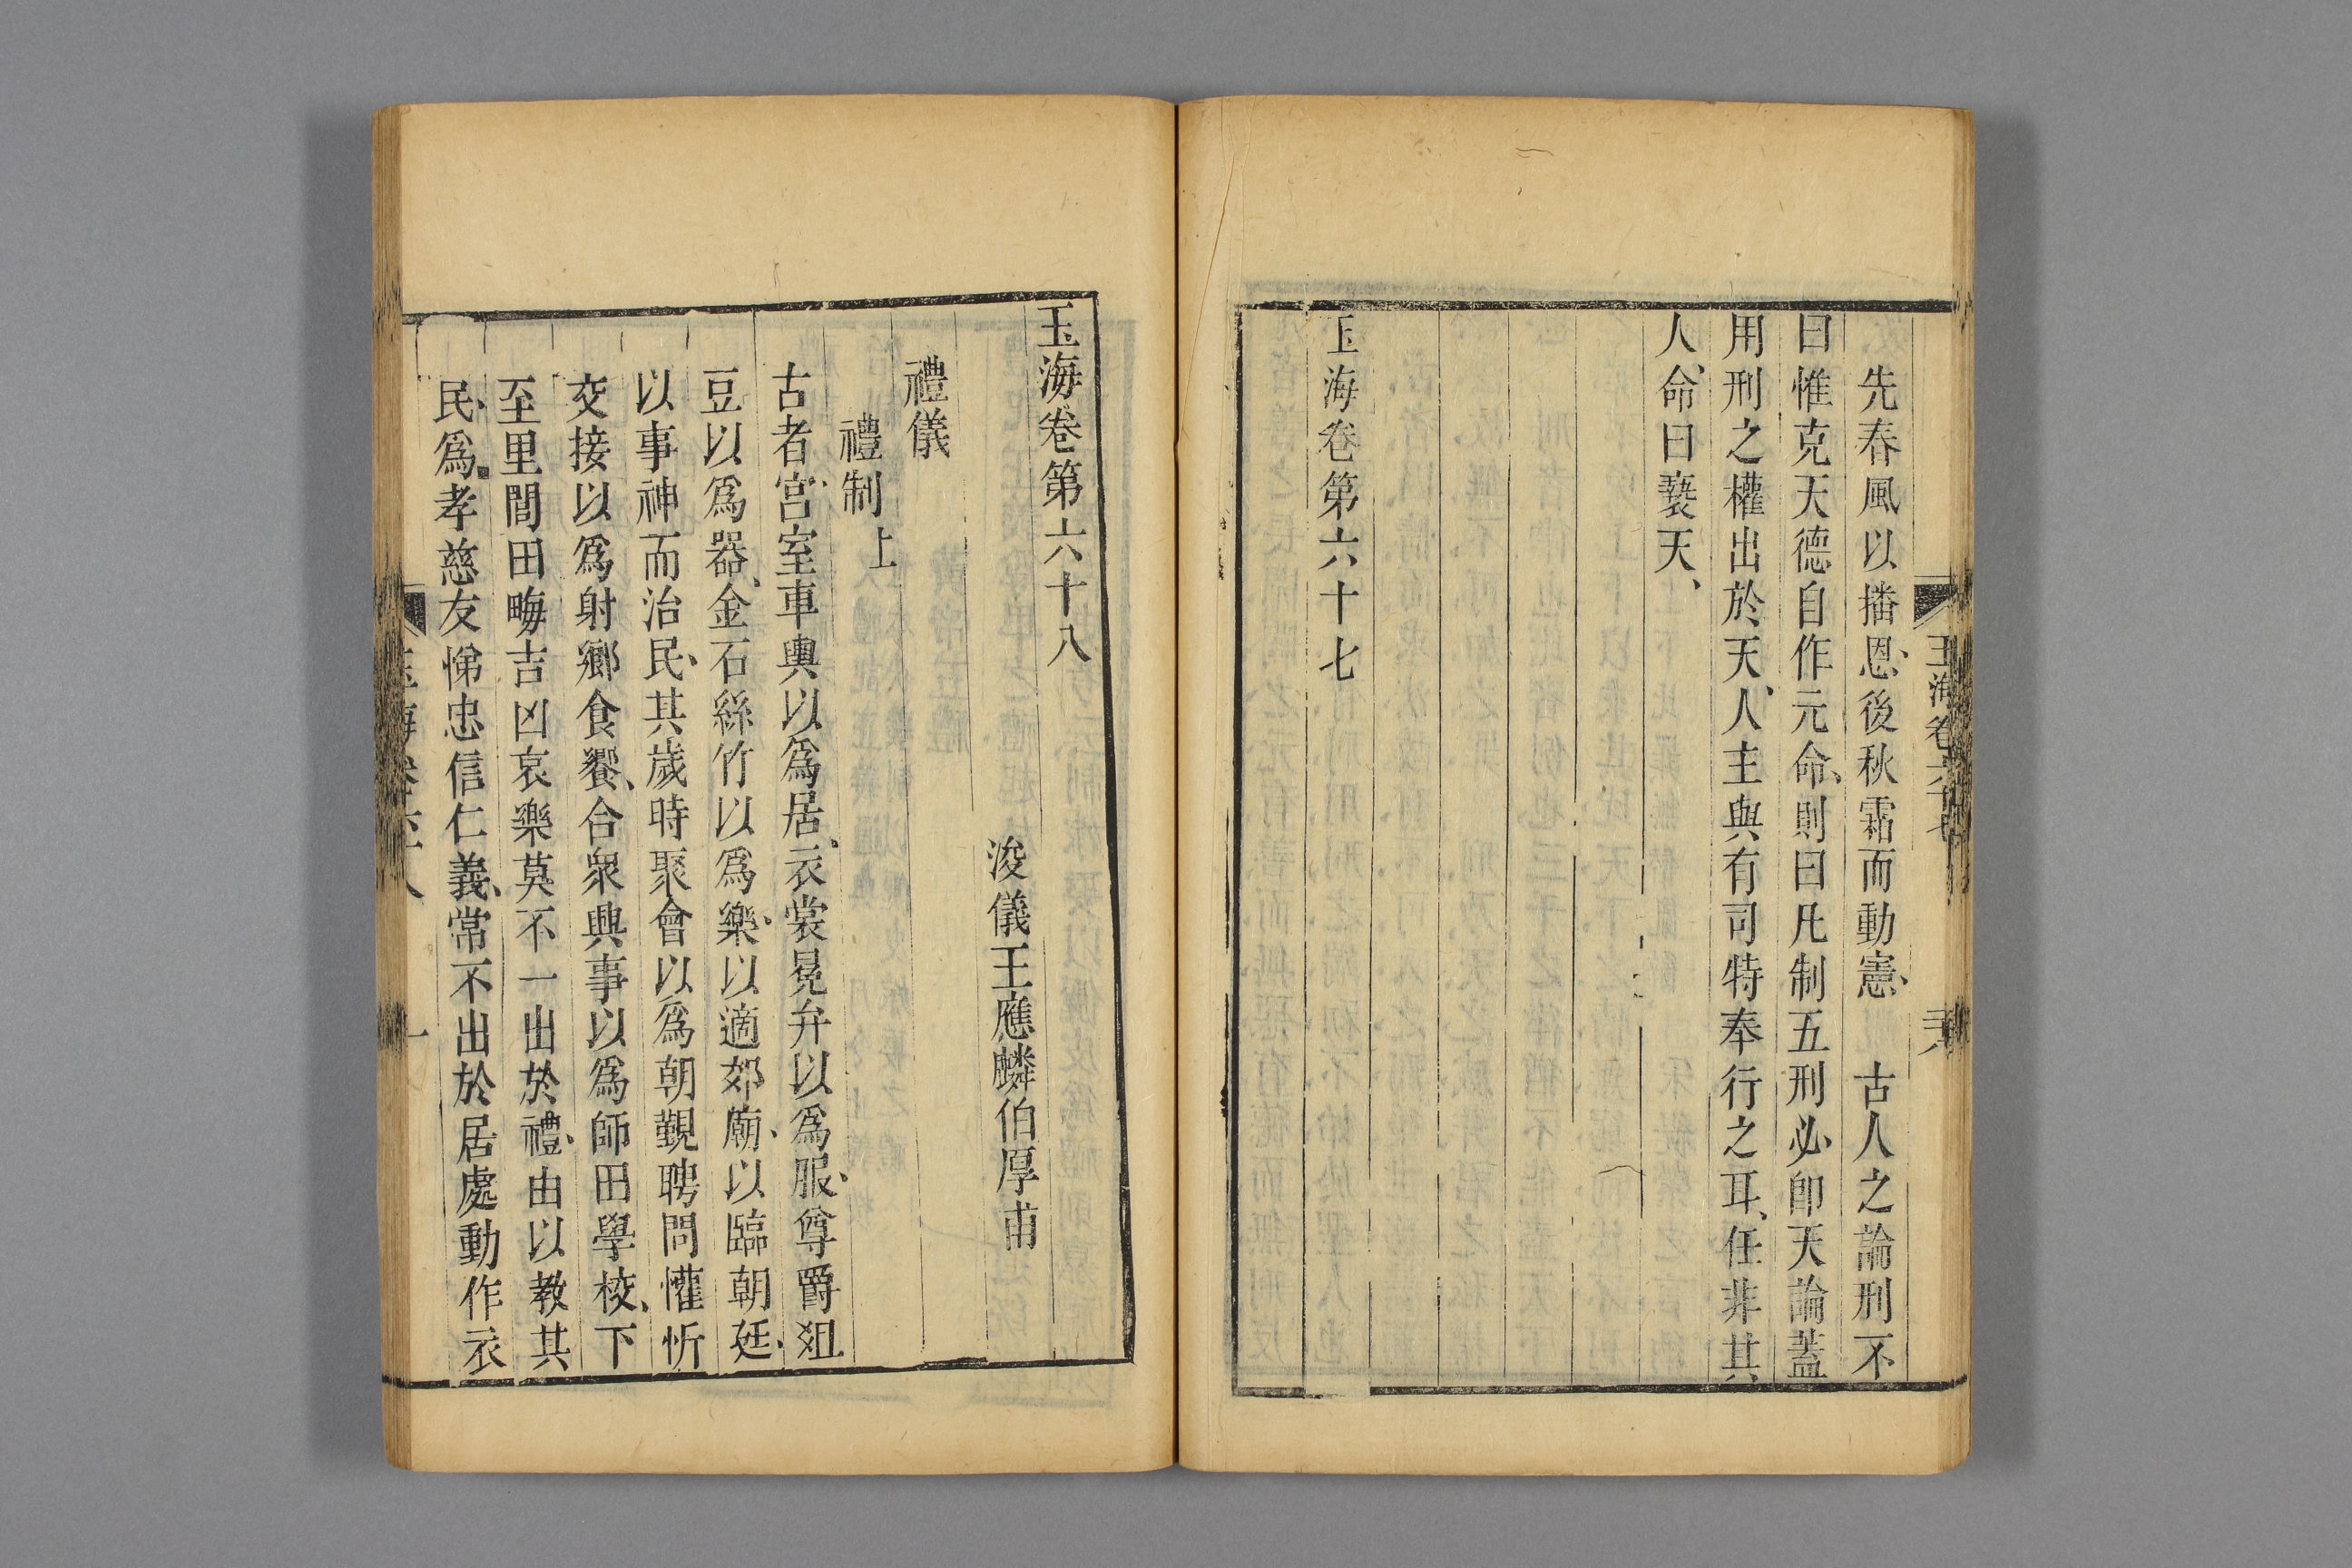 先春風以播恩、後秋霜而動憲、　古人之論刑不
曰惟克天德自作元命、則曰凡制五刑必卽天論蓋
用刑之權出於天、人主與有司特奉行之耳、任非其
人、命曰褻天、
玉海卷第六十七
玉海卷第六十八
浚儀王應麟伯厚甫
禮儀
禮制上
古者、宮室車輿以爲居、衣裳冕弁以爲服、尊爵俎
豆以爲器、金石絲竹以爲樂、以適郊廟、以臨朝廷、
以事神而治民、其歲時聚會以爲朝覲聘問懽忻
交接以爲射鄉食饗、合衆興事以爲師田學校、下
至里閭田畮吉凶哀樂莫不一出於禮、由以教其
民、爲孝慈友悌忠信仁義、常不出於居處動作衣
玉海卷六十八
一